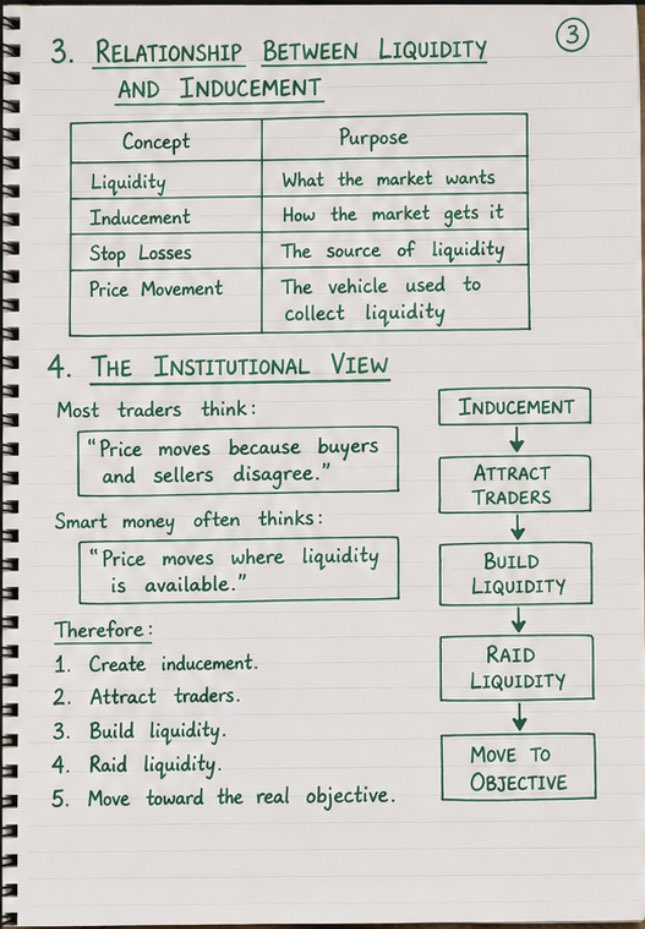 3
3. RELATIONSHIP BETWEEN LIQUIDITY
AND INDUCEMENT
Concept Purpose
Liquidity What the market wants
Inducement How the market gets it
Stop Losses The source of liquidity
Price Movement The vehicle used to
collect liquidity
4. THE INSTITUTIONAL VIEW
Most traders think:
"Price moves because buyers
and sellers disagree."
Smart money often thinks:
"Price moves where liquidity
is available."
Therefore:
1. Create inducement.
2. Attract traders.
3. Build liquidity.
4. Raid liquidity.
5. Move toward the real objective.
INDUCEMENT
ATTRACT
TRADERS
BUILD
LIQUIDITY
RAID
LIQUIDITY
MOVE TO
OBJECTIVE